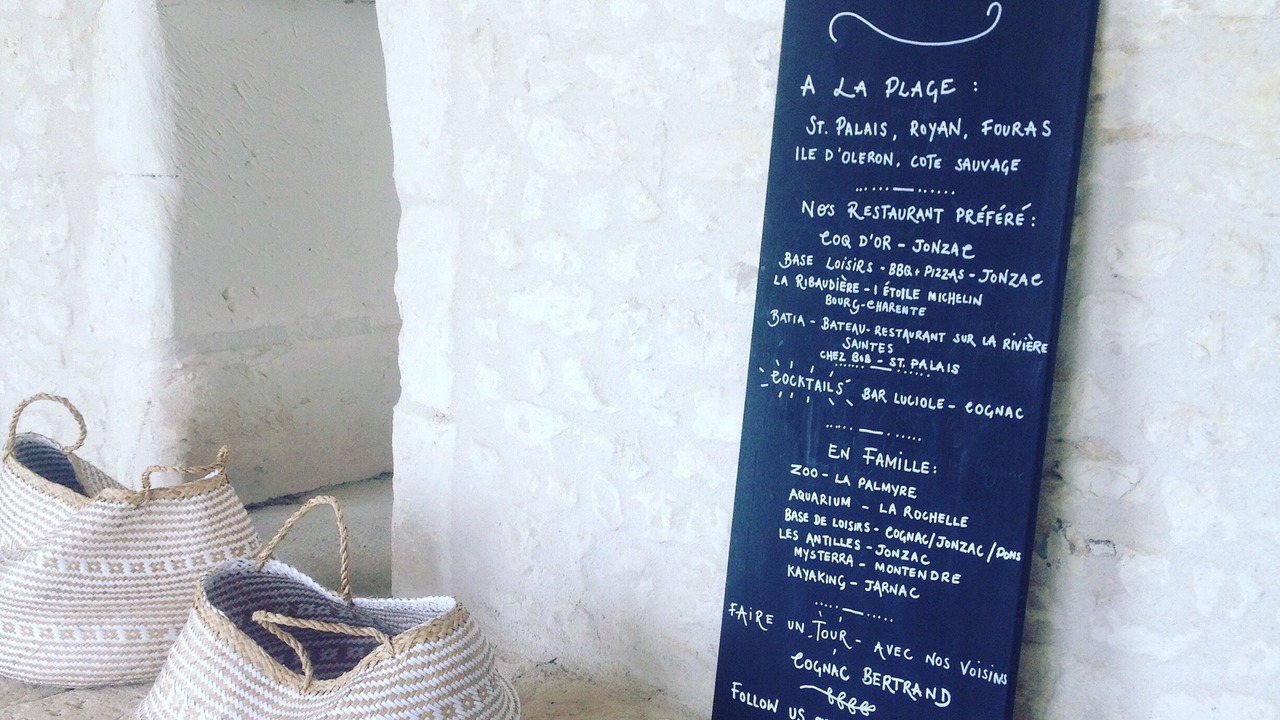 A LA PLAGE :
ST. PALAIS, ROYAN, FOURAS
ILE D'OLERON, COTE SAUVAGE
NOS RESTAURANT PRÉFÉRÉ :
COQ D'OR - JONZAC
BASE LOISIRS - BBQ + PIZZAS - JONZAC
LA RIBAUDIÈRE - 1 ÉTOILE MICHELIN
BOURG-CHARENTE
BATIA - BATEAU-RESTAURANT SUR LA RIVIÈRE
SAINTES
CHEZ BOB - ST. PALAIS
COCKTAILS BAR LUCIOLE - COGNAC
EN FAMILLE :
ZOO - LA PALMYRE
AQUARIUM - LA ROCHELLE
BASE DE LOISIRS - COGNAC/JONZAC/PONS
LES ANTILLES - JONZAC
MYSTERRA - MONTENDRE
KAYAKING - JARNAC
FAIRE UN TOUR - AVEC NOS VOISINS
COGNAC BERTRAND
FOLLOW US